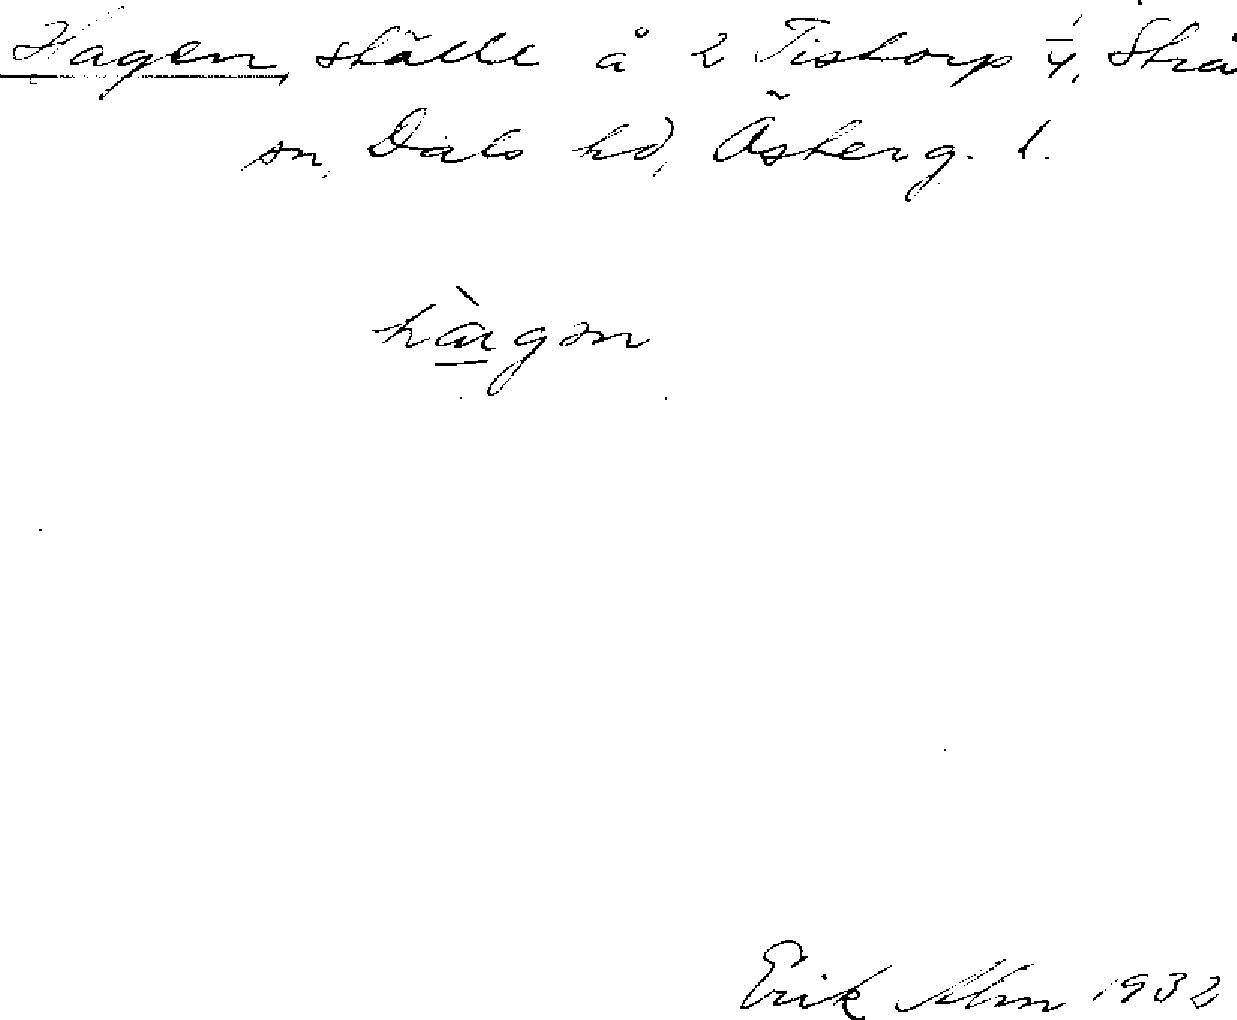 Hagen, ställe å 2 Tistorp 1/4, Strå
sn, Dals hd, Österg. l.
hàgən
Erik Alm 1932